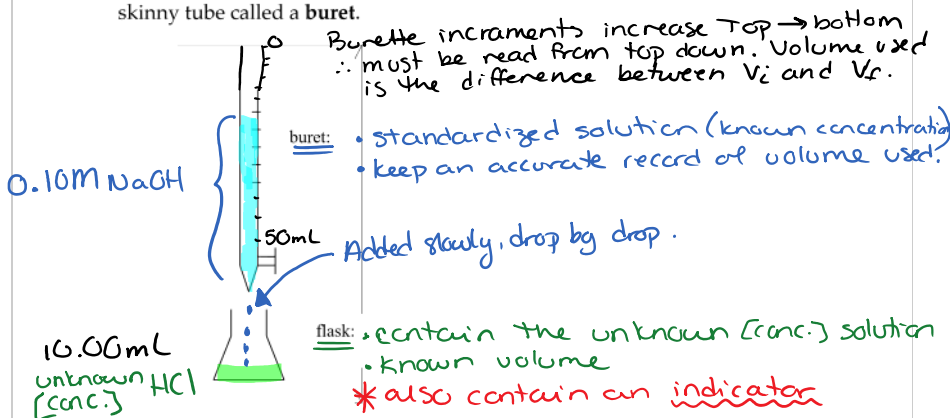 skinny tube called a buret.
0
Burette incraments increase Top → bottom
∴ must be read from top down. Volume used
is the difference between Vi and Vf.
buret:
• standardized solution (known concentration)
• keep an accurate record of volume used!
0.10M NaOH
50mL
Added slowly, drop by drop.
flask:
• contain the unknown [conc.] solution
• known volume
* also contain an indicator
10.00mL
unknown HCl
[conc.]